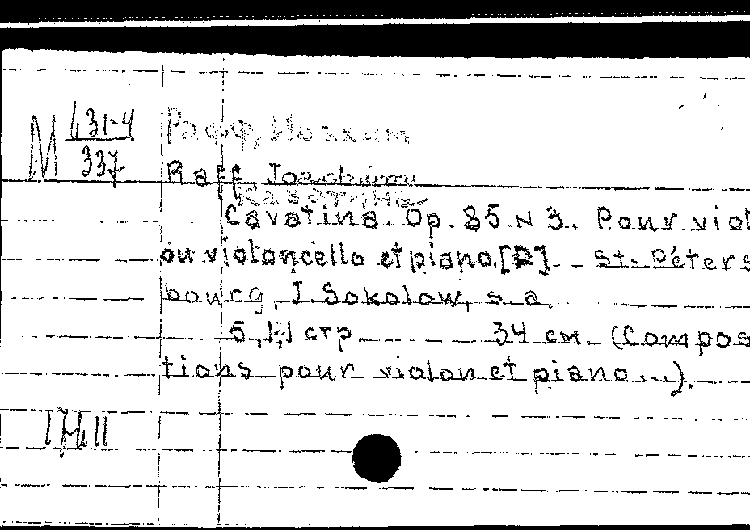 M 431-4
337
Рафф, Иоахим
Raff Joachim
Каватина
Cavatina. Op. 85 N 3. Pour viol
ou violoncello et piano. [D]. - St. Péters
bourg, J. Sokolow, s. a.
5, 1, 1 стр 34 см. (Compos
tions pour violon et piano...).